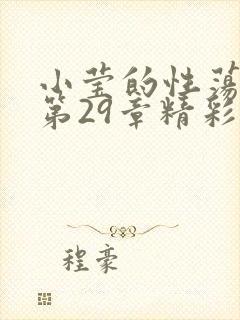 小莹的性荡
第29章精彩
程豪